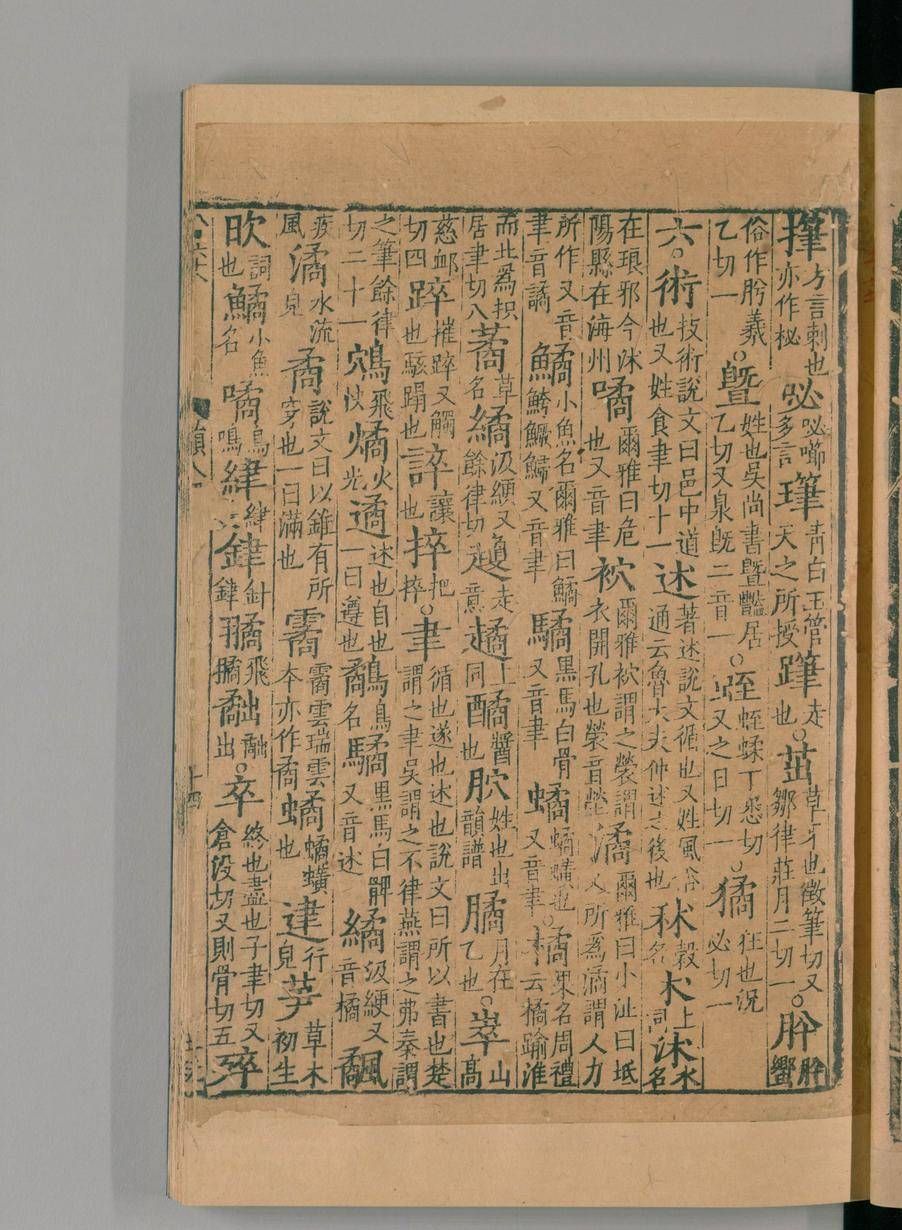 方言刺也亦作柲咇咇㘉多言青白玉管天之所授走也○茁草牙也徵筆切又鄒律莊月二切一○肸肸蠁
俗作肹羲乙切一○曁姓也吳尚書曁豔居乙切又泉旣二音一○蛭蛭蝚丁悉切又之日切一○獝狂也況必切一
六○術技術說文曰邑中道也又姓食聿切十一述著述說文循也又姓風俗通云魯大夫仲述之後也秫穀名朮上同沭水名
在琅邪今沭陽縣在海州噊爾雅曰危也又音聿𧘑爾雅𧘑謂之褮謂衣開孔也褮音熒潏爾雅曰小沚曰坻人所爲潏謂人力
所作又音聿音譎鱊小魚名爾雅曰鱊鮬鱖鯞又音聿驈黑馬白骨又音聿𧑐𧑐蟥也又音聿○橘果名周禮云橘踰淮
而北爲枳居聿切八草名繘汲綆又餘律切走意上同醬也姓也出韻譜月在乙也○崒山高
慈䘏切四踤摧踤又觸也駭蹋也誶讓也捽把捽○聿循也遂也述也說文曰所以書也楚謂之聿吳謂之不律燕謂之弗秦謂
之筆餘律切二十一鴥飛快燏火光遹述也自也一曰遵也鷸鳥名驈黑馬白髀又音述繘汲綆又音橘
疾風潏水流皃矞說文曰以錐有所穿也一曰滿也霱霱雲瑞雲本亦作矞𧑐𧑐蟥也行皃芛草木初生
欥詞也鱊小魚名噊鳥鳴銉針銉飛出○卒終也盡也子聿切又倉没切又則骨切五